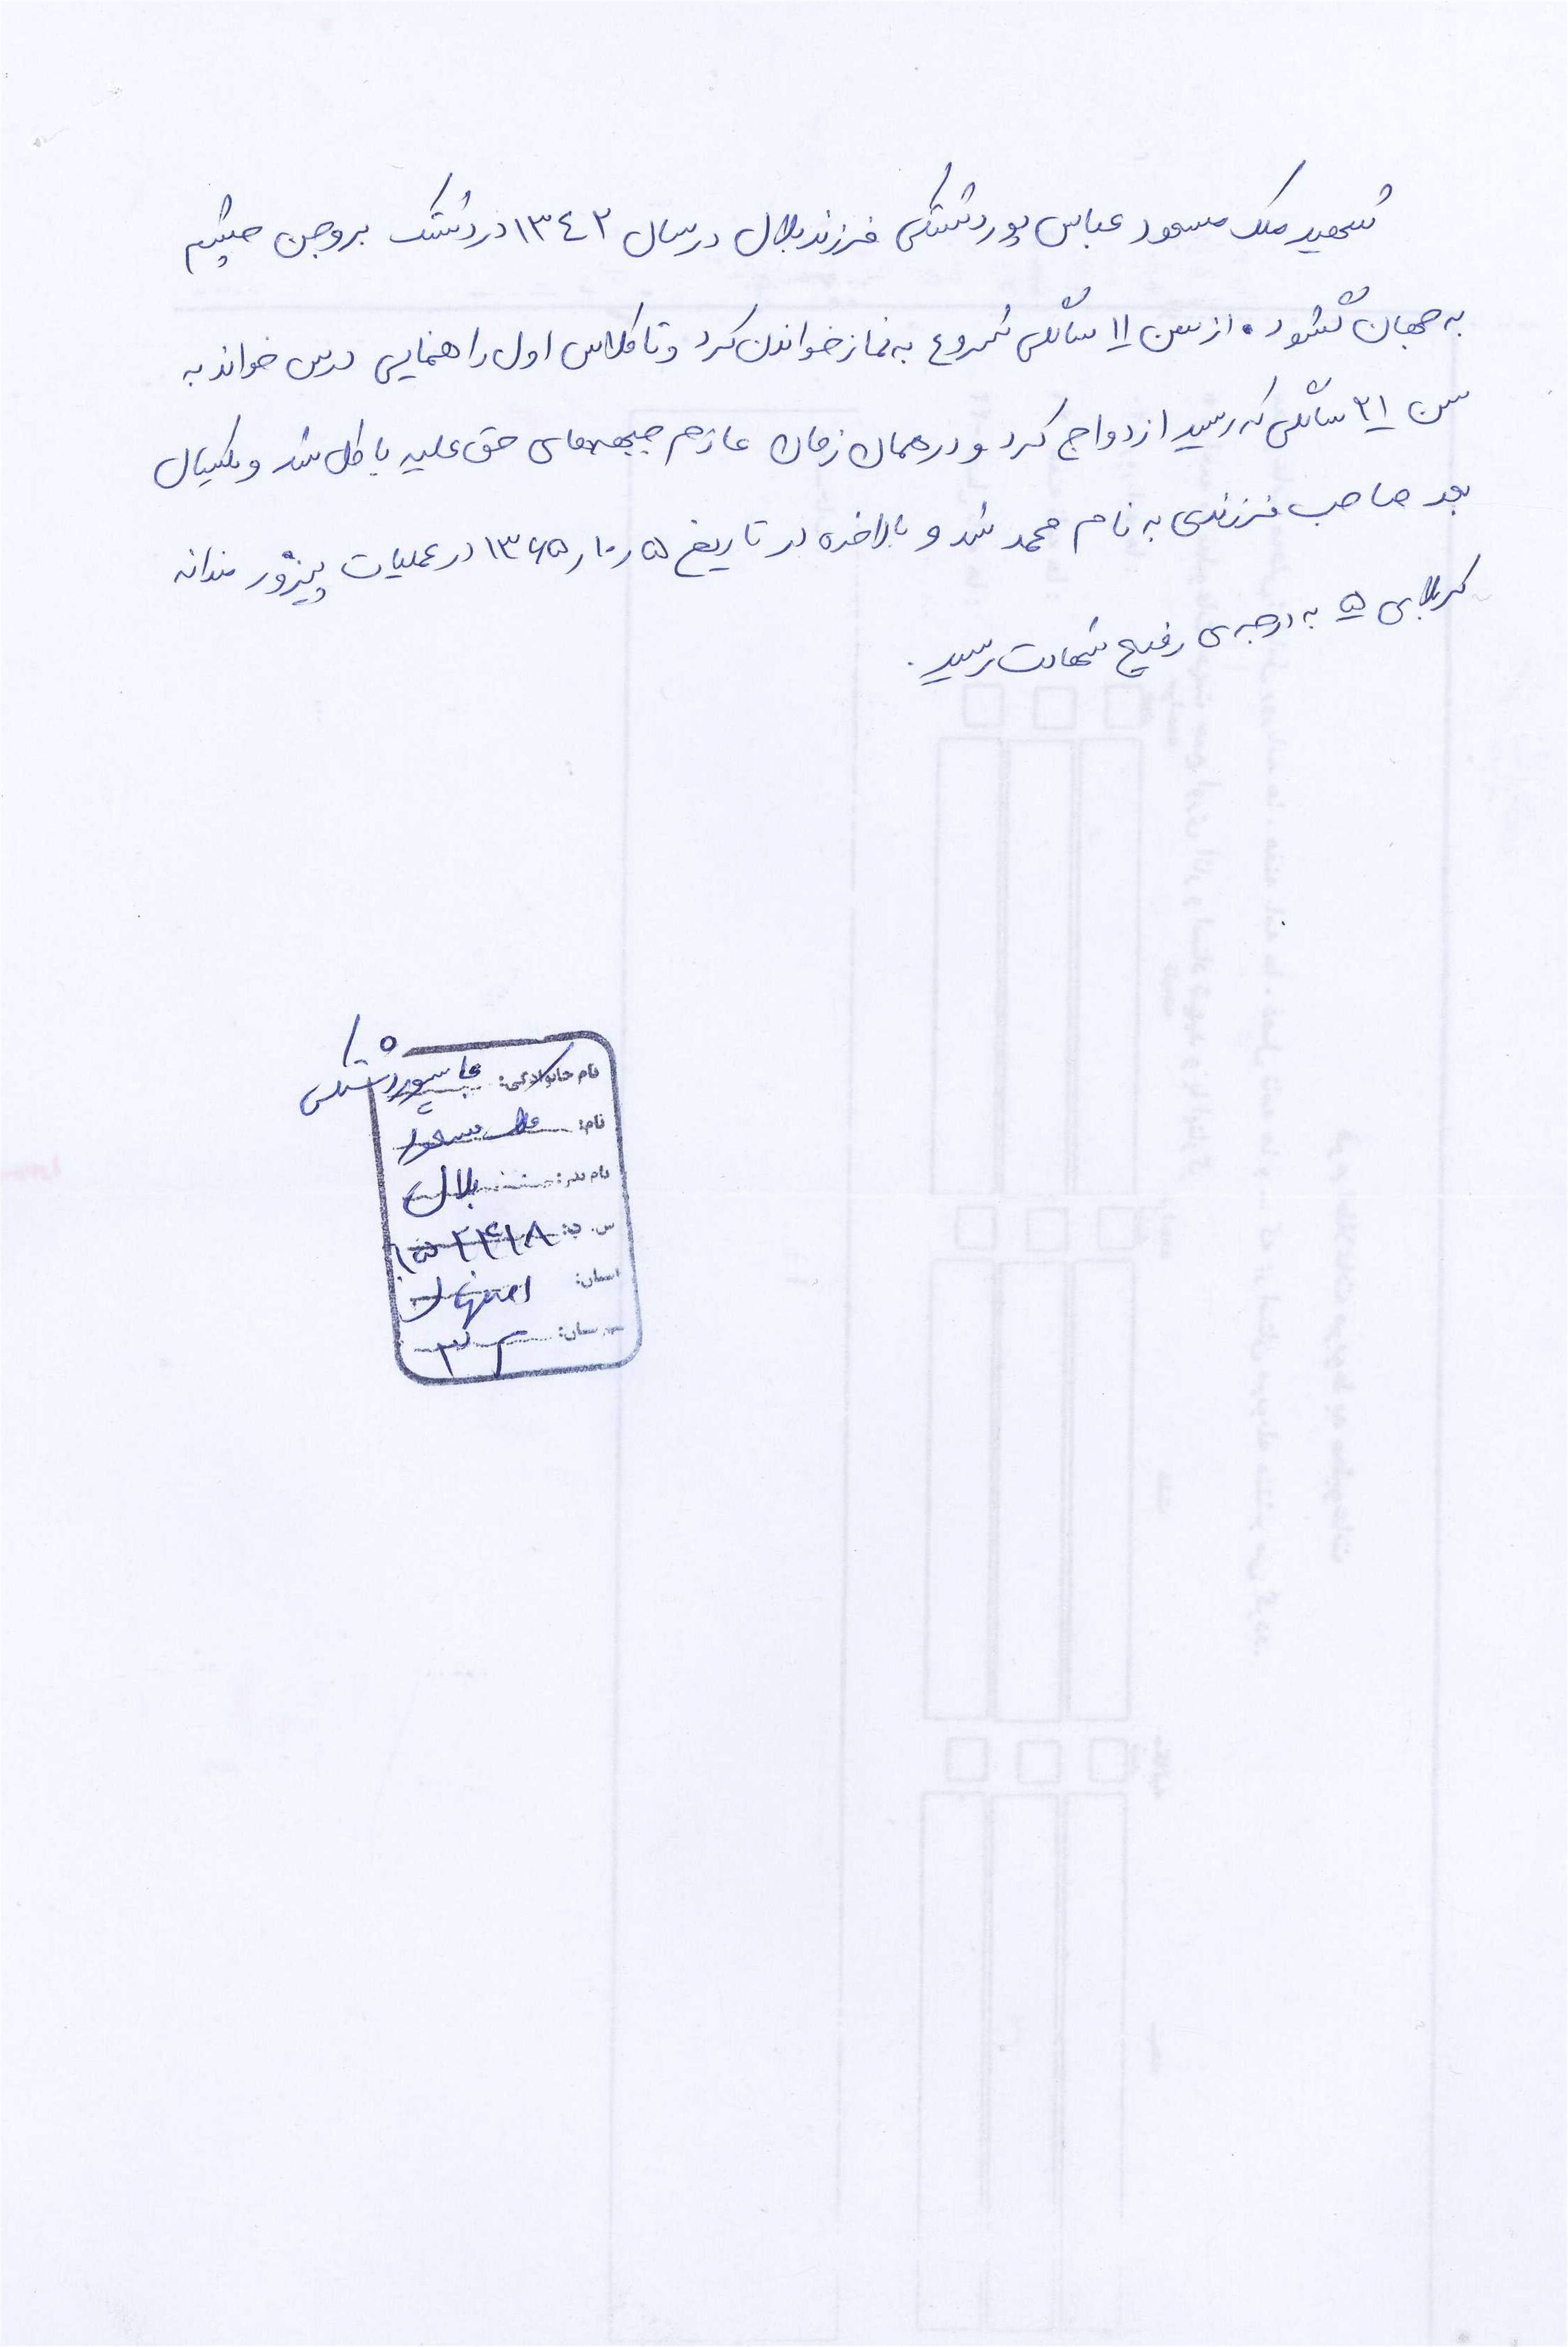 شهید ملک مسعود عباس پور دشتکی فرزند بلال در سال ۱۳۴۲ در دشتک بروجن چشم
به جهان گشود. از سن ۱۱ سالگی شروع به نماز خواندن کرد و تا کلاس اول راهنمایی درس خواند به
سن ۲۱ سالگی که رسید ازدواج کرد و در همان زمان عازم جبهه‌های حق علیه باطل شد و یکسال
بعد صاحب فرزندی به نام محمد شد و بالاخره در تاریخ ۱۳۶۵/۱۰/۵ در عملیات پیروزمندانه
کربلای ۵ به درجه‌ی رفیع شهادت رسید.
نام خانوادگی: دشتکی
نام: ملک مسعود
نام پدر: بلال
استان: اصفهان